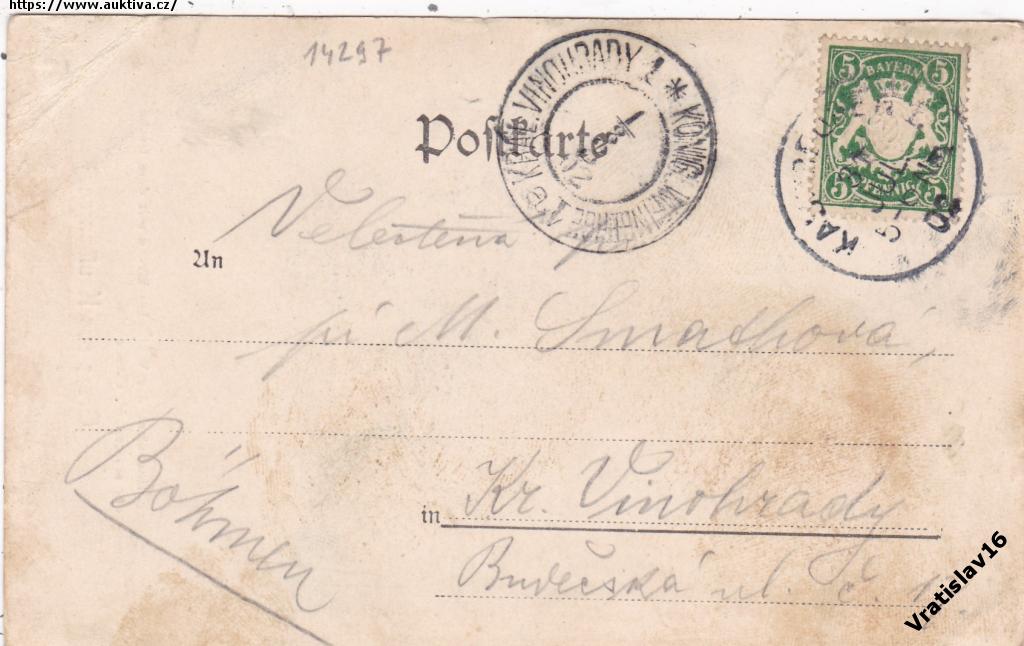 https://www.auktiva.cz/
14297
KRÁL. VINOHRADY 1 * KÖNIGL. WEINBERGE 1
5 BAYERN 5
5 PFENNIG 5
Postkarte
An
pí M. Smathová,
Böhmen
in Kr. Vinohrady
Budečská ul. č.
Vratislav16